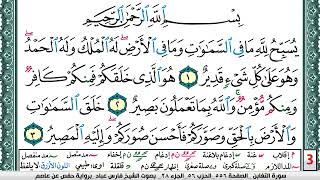 بِسْمِ ٱللَّهِ ٱلرَّحْمَٰنِ ٱلرَّحِيمِ
يُسَبِّحُ لِلَّهِ مَا فِي ٱلسَّمَٰوَٰتِ وَمَا فِي ٱلْأَرْضِ ۖ لَهُ ٱلْمُلْكُ وَلَهُ ٱلْحَمْدُ ۖ
وَهُوَ عَلَىٰ كُلِّ شَيْءٍ قَدِيرٌ ١ هُوَ ٱلَّذِي خَلَقَكُمْ فَمِنكُمْ كَافِرٌ
وَمِنكُم مُّؤْمِنٌ ۚ وَٱللَّهُ بِمَا تَعْمَلُونَ بَصِيرٌ ٢ خَلَقَ ٱلسَّمَٰوَٰتِ
وَٱلْأَرْضَ بِٱلْحَقِّ وَصَوَّرَكُمْ فَأَحْسَنَ صُوَرَكُمْ ۖ وَإِلَيْهِ ٱلْمَصِيرُ ٣
3
سورة التغابن الصفحة ٥٥٦ الحزب ٥٦ الجزء ٢٨ بصوت الشيخ فارس عباد برواية حفص عن عاصم